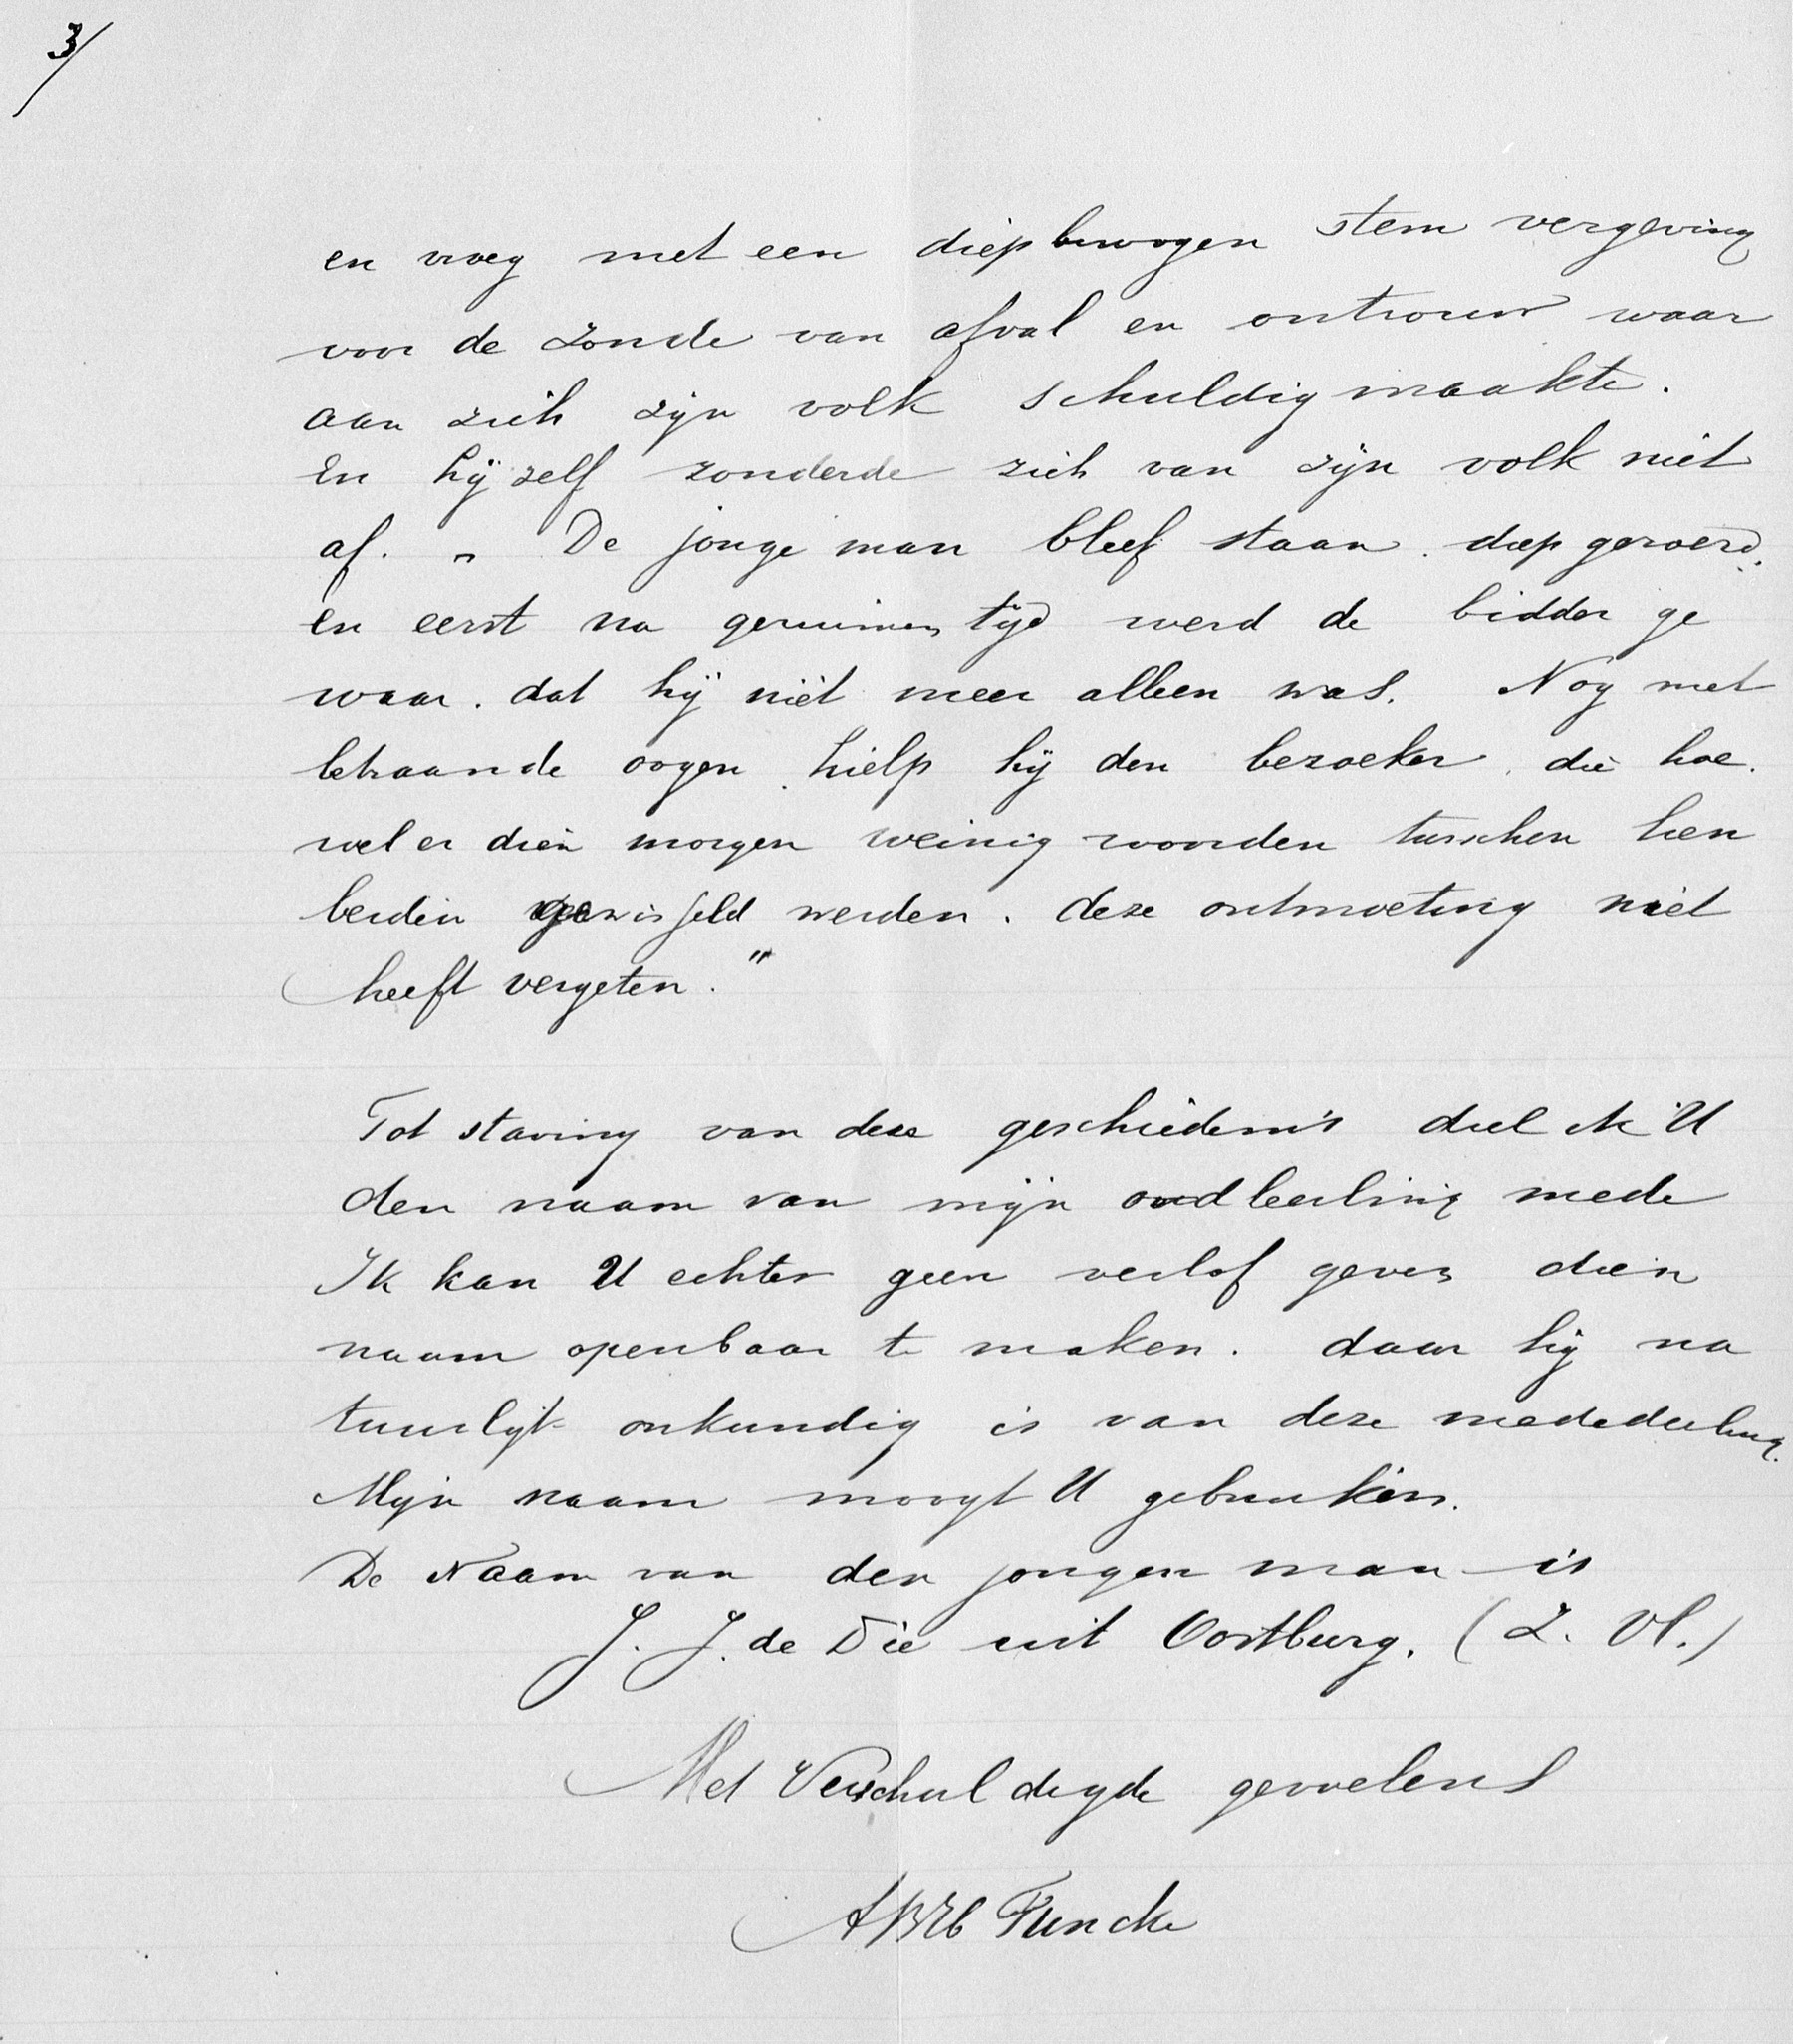 3/
en vroeg met een diep bewogen stem vergeving
voor de zonde van afval en ontrouw waar
aan zich zijn volk schuldig maakte.
En hij zelf zonderde zich van zijn volk niet
af. „ De jonge man bleef staan. diep geroerd.
en eerst na geruimen tijd werd de bidder ge
waar. dat hij niet meer alleen was. Nog met
betraande oogen hielp hij den bezoeker, die hoe.
wel er dien morgen weinig woorden tusschen hen
beiden gewisseld werden. deze ontmoeting niet
heeft vergeten."
Tot staving van deze geschiedenis deel ik U
den naam van mijn oudleerling mede
Ik kan U echter geen verlof geven dien
naam openbaar te maken. daar hij na
tuurlijk onkundig is van deze mededeeling.
Mijn naam moogt U gebruiken.
De Naam van den jongen man is
J. J. de Die uit Oostburg. (Z. Vl.)
Met Verschuldigde gevoelens
Funcke